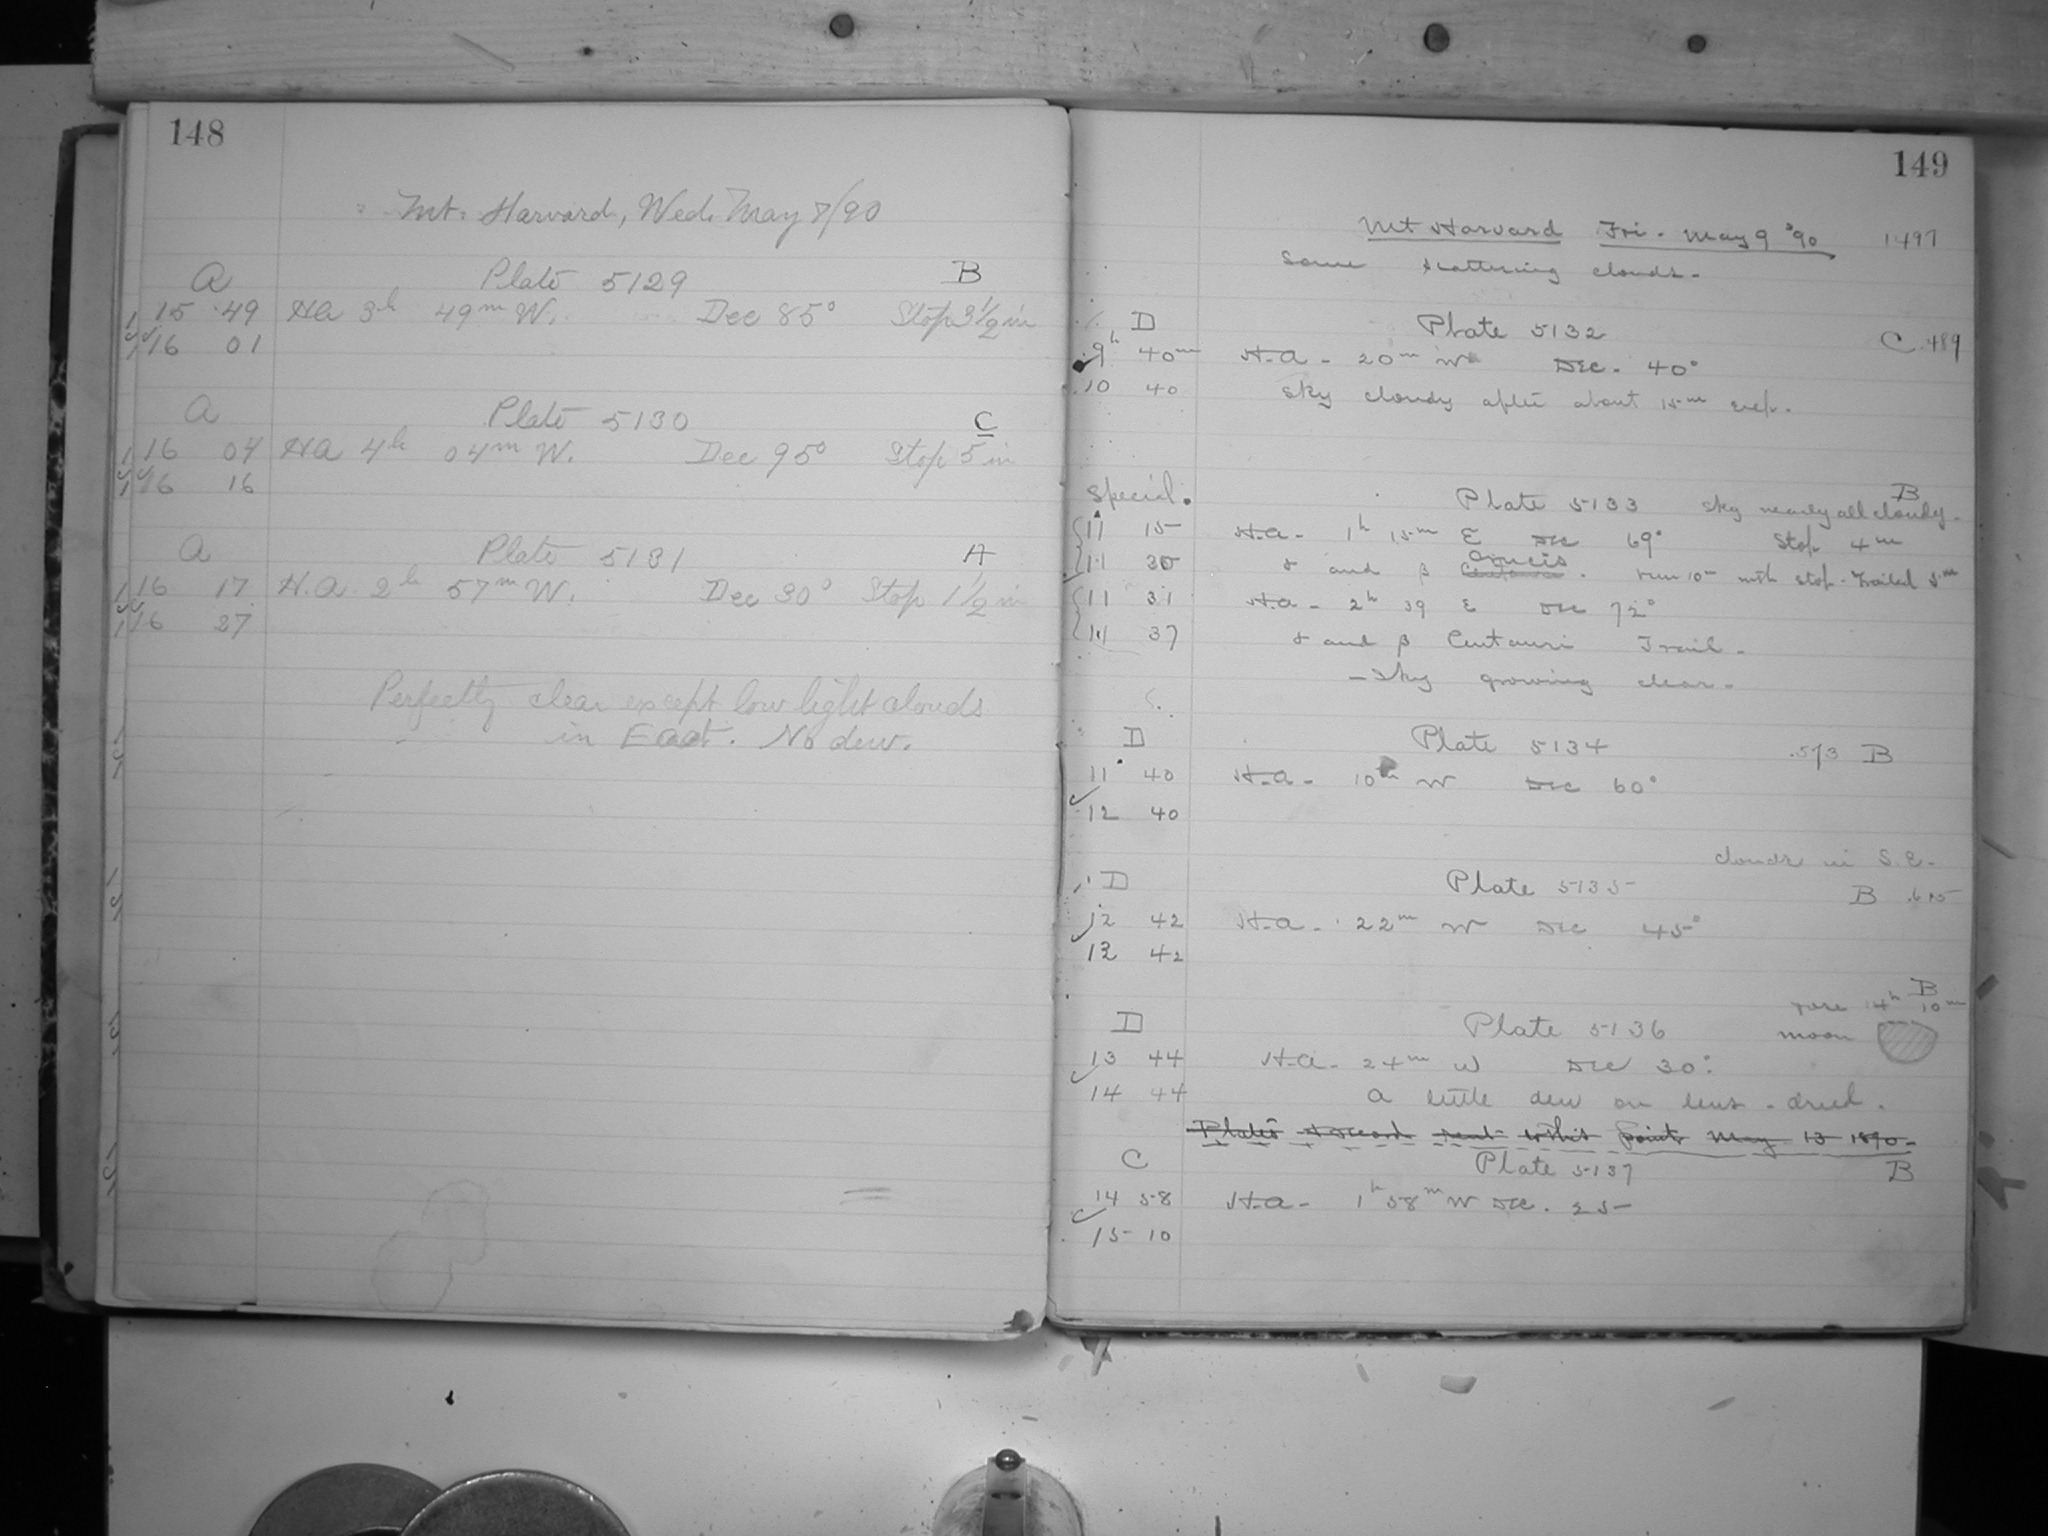 148
Mt. Harvard, Wed. May 7/90
A Plate 5129 B
15 49 HA 3h 49m W. Dec 85° Stop 3 1/2 in
16 01
A Plate 5130 C
16 04 HA 4h 04m W. Dec 95° Stop 5 in
16 16
A Plate 5131 A
16 17 H.A. 2h 57m W. Dec 30° Stop 1 1/2 in
16 27
Perfectly clear except low light clouds
in East. No dew.
149
Mt Harvard Fri. May 9 '90 1497
Some scattering clouds.
D Plate 5132 C .489
9h 40m H.A. 20m W Dec. 40°
10 40 Sky cloudy after about 15m exp.
Special. Plate 5133 B
Sky nearly all cloudy.
11 15 H.A. 1h 15m E Dec 69° Stop 4 in
11 30 α and β Crucis. run 10m with stop. Trailed 5m
11 31 H.A. 2h 39 E Dec 72°
11 37 α and β Centauri Trail.
— Sky growing clear.
D Plate 5134 .573 B
11 40 H.A. 10m W Dec 60°
12 40
clouds in S.E.
D Plate 5135 B
12 42 H.A. 22m W Dec 45°
13 42
B
rose 14h 10m
D Plate 5136 moon
13 44 H.A. 24m W Dec 30°
14 44 A little dew on lens - dried.
Plates & record sent to this point May 13 1890.
C Plate 5137 B
14 58 H.A. 1h 58m W Dec. 25
15 10